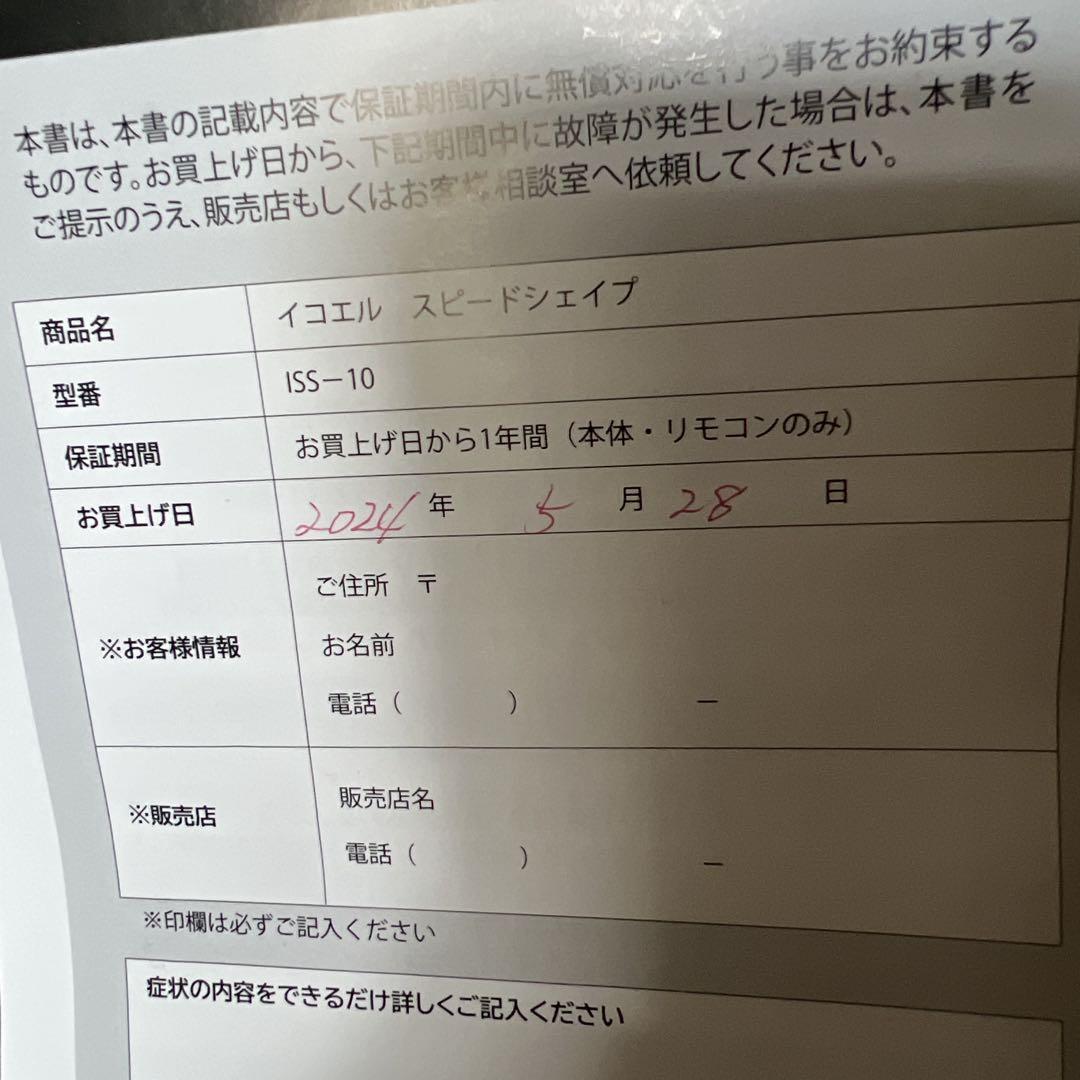 本書は、本書の記載内容で保証期間内に無償対応を行う事をお約束する
ものです。お買上げ日から、下記期間中に故障が発生した場合は、本書を
ご提示のうえ、販売店もしくはお客様相談室へ依頼してください。
商品名 イコエル スピードシェイプ
型番 ISS-10
保証期間 お買上げ日から1年間（本体・リモコンのみ）
お買上げ日 2024 年 5 月 28 日
※お客様情報
ご住所 〒
お名前
電話（ ） ー
※販売店
販売店名
電話（ ） ー
※印欄は必ずご記入ください
症状の内容をできるだけ詳しくご記入ください